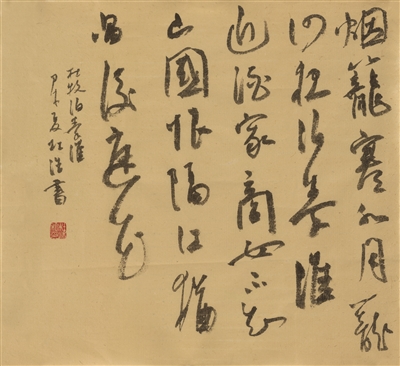 烟籠寒水月籠
沙夜泊秦淮
近酒家商女不知
亡國恨隔江猶
唱後庭花
杜牧泊秦淮
夏
書